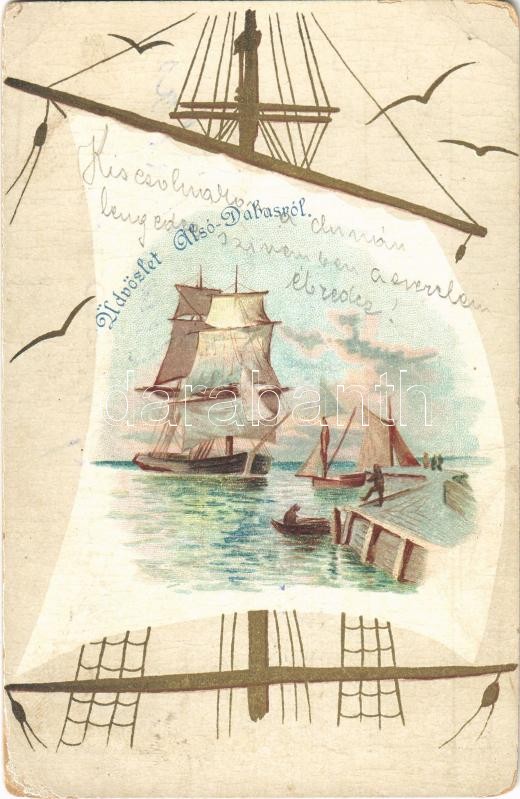 Kis csolnakom a dunán
lengedez szivemben a szerelem
ébredez!
Üdvözlet Alsó-Dabasról.
darabanth